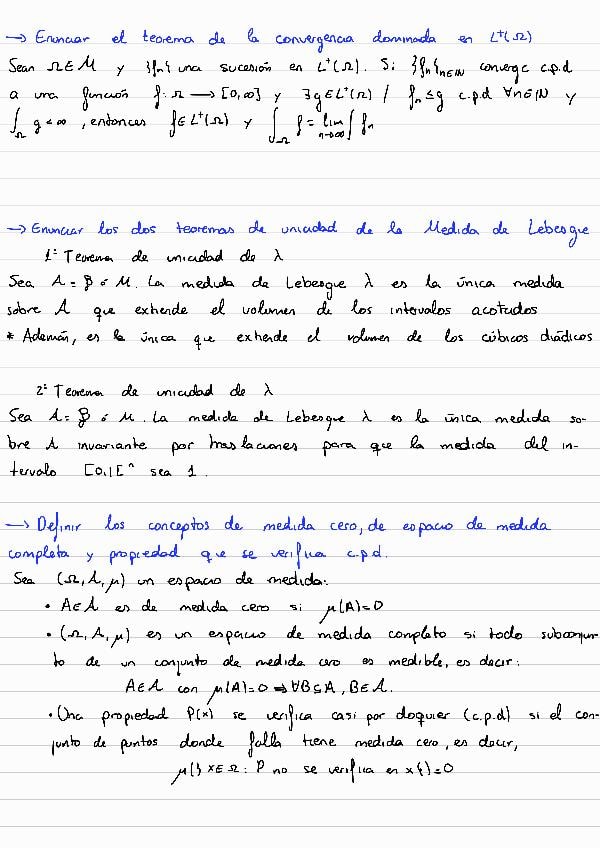 → Enunciar el teorema de la convergencia dominada en L⁺(Ω)
Sean Ω∈M y {fn} una sucesión en L⁺(Ω). Si {fn}n∈ℕ converge c.p.d
a una función f: Ω → [0,∞] y ∃g∈L⁺(Ω) / fn≤g c.p.d ∀n∈ℕ y
∫Ω g<∞, entonces f∈L⁺(Ω) y ∫Ω f = lim n→∞ ∫ fn
→ Enunciar los dos teoremas de unicidad de la Medida de Lebesgue
1º Teorema de unicidad de λ
Sea A = B ó M. La medida de Lebesgue λ es la única medida
sobre A que extiende el volumen de los intervalos acotados
* Además, es la única que extiende el volumen de los cúbicos diádicos
2º Teorema de unicidad de λ
Sea A = B ó M. La medida de Lebesgue λ es la única medida so-
bre A invariante por traslaciones para que la medida del in-
tervalo [0,1[ⁿ sea 1.
→ Definir los conceptos de medida cero, de espacio de medida
completa y propiedad que se verifica c.p.d.
Sea (Ω, A, μ) un espacio de medida:
• A∈A es de medida cero si μ(A)=0
• (Ω, A, μ) es un espacio de medida completo si todo subconjun-
to de un conjunto de medida cero es medible, es decir:
A∈A con μ(A)=0 ⇒ ∀B⊆A, B∈A.
• Una propiedad P(x) se verifica casi por doquier (c.p.d) si el con-
junto de puntos donde falla tiene medida cero, es decir,
μ({x∈Ω: P no se verifica en x})=0